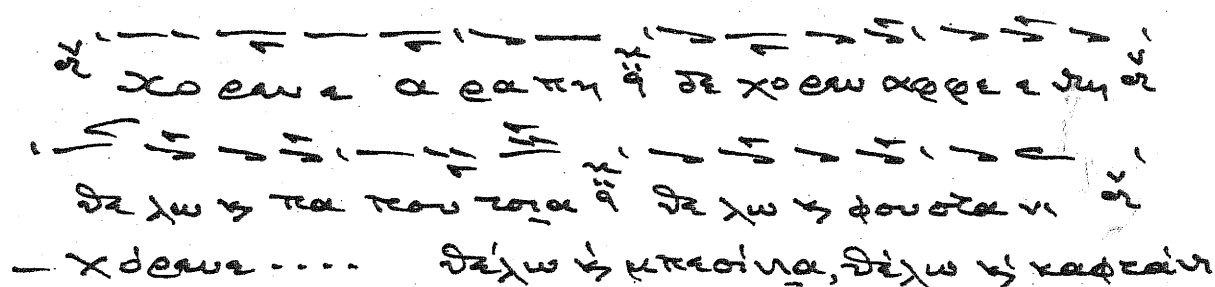 χο ρευ ε α ρα πη δε χο ρευ αφφε ε ντη
θε λω κ πα που τσια θε λω κ φουστα νι
– χόρευε .... θέλω κ μπεσίνια, θέλω κ καφτάνι